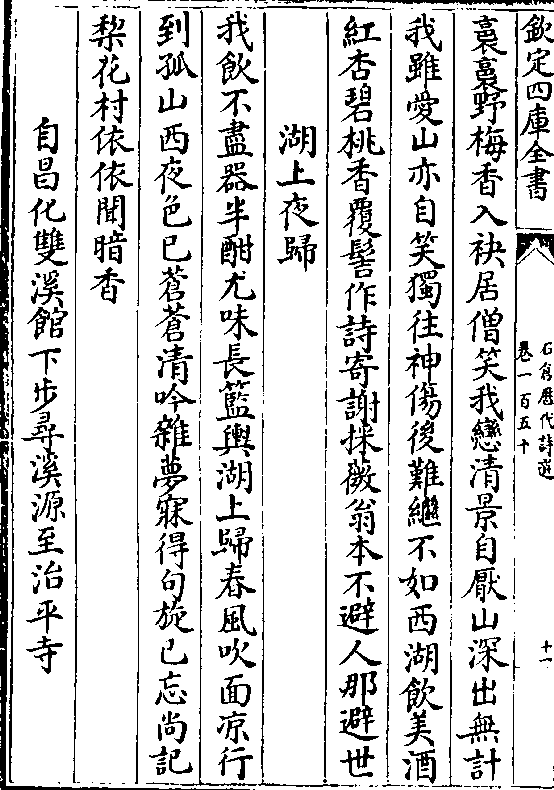 欽定四庫全書
石倉歷代詩選
卷一百五十
十一
裏裏野梅香入袂居僧笑我戀清景自厭山深出無計
我雖愛山亦自笑獨往神傷後難繼不如西湖飲美酒
紅杏碧桃香覆髻作詩寄謝採薇翁本不避人那避世
湖上夜歸
我飲不盡器半酣尤味長籃輿湖上歸春風吹面凉行
到孤山西夜色已蒼蒼清吟雜夢寐得句旋已忘尚記
梨花村依依聞暗香
自昌化雙溪館下步尋溪源至治平寺